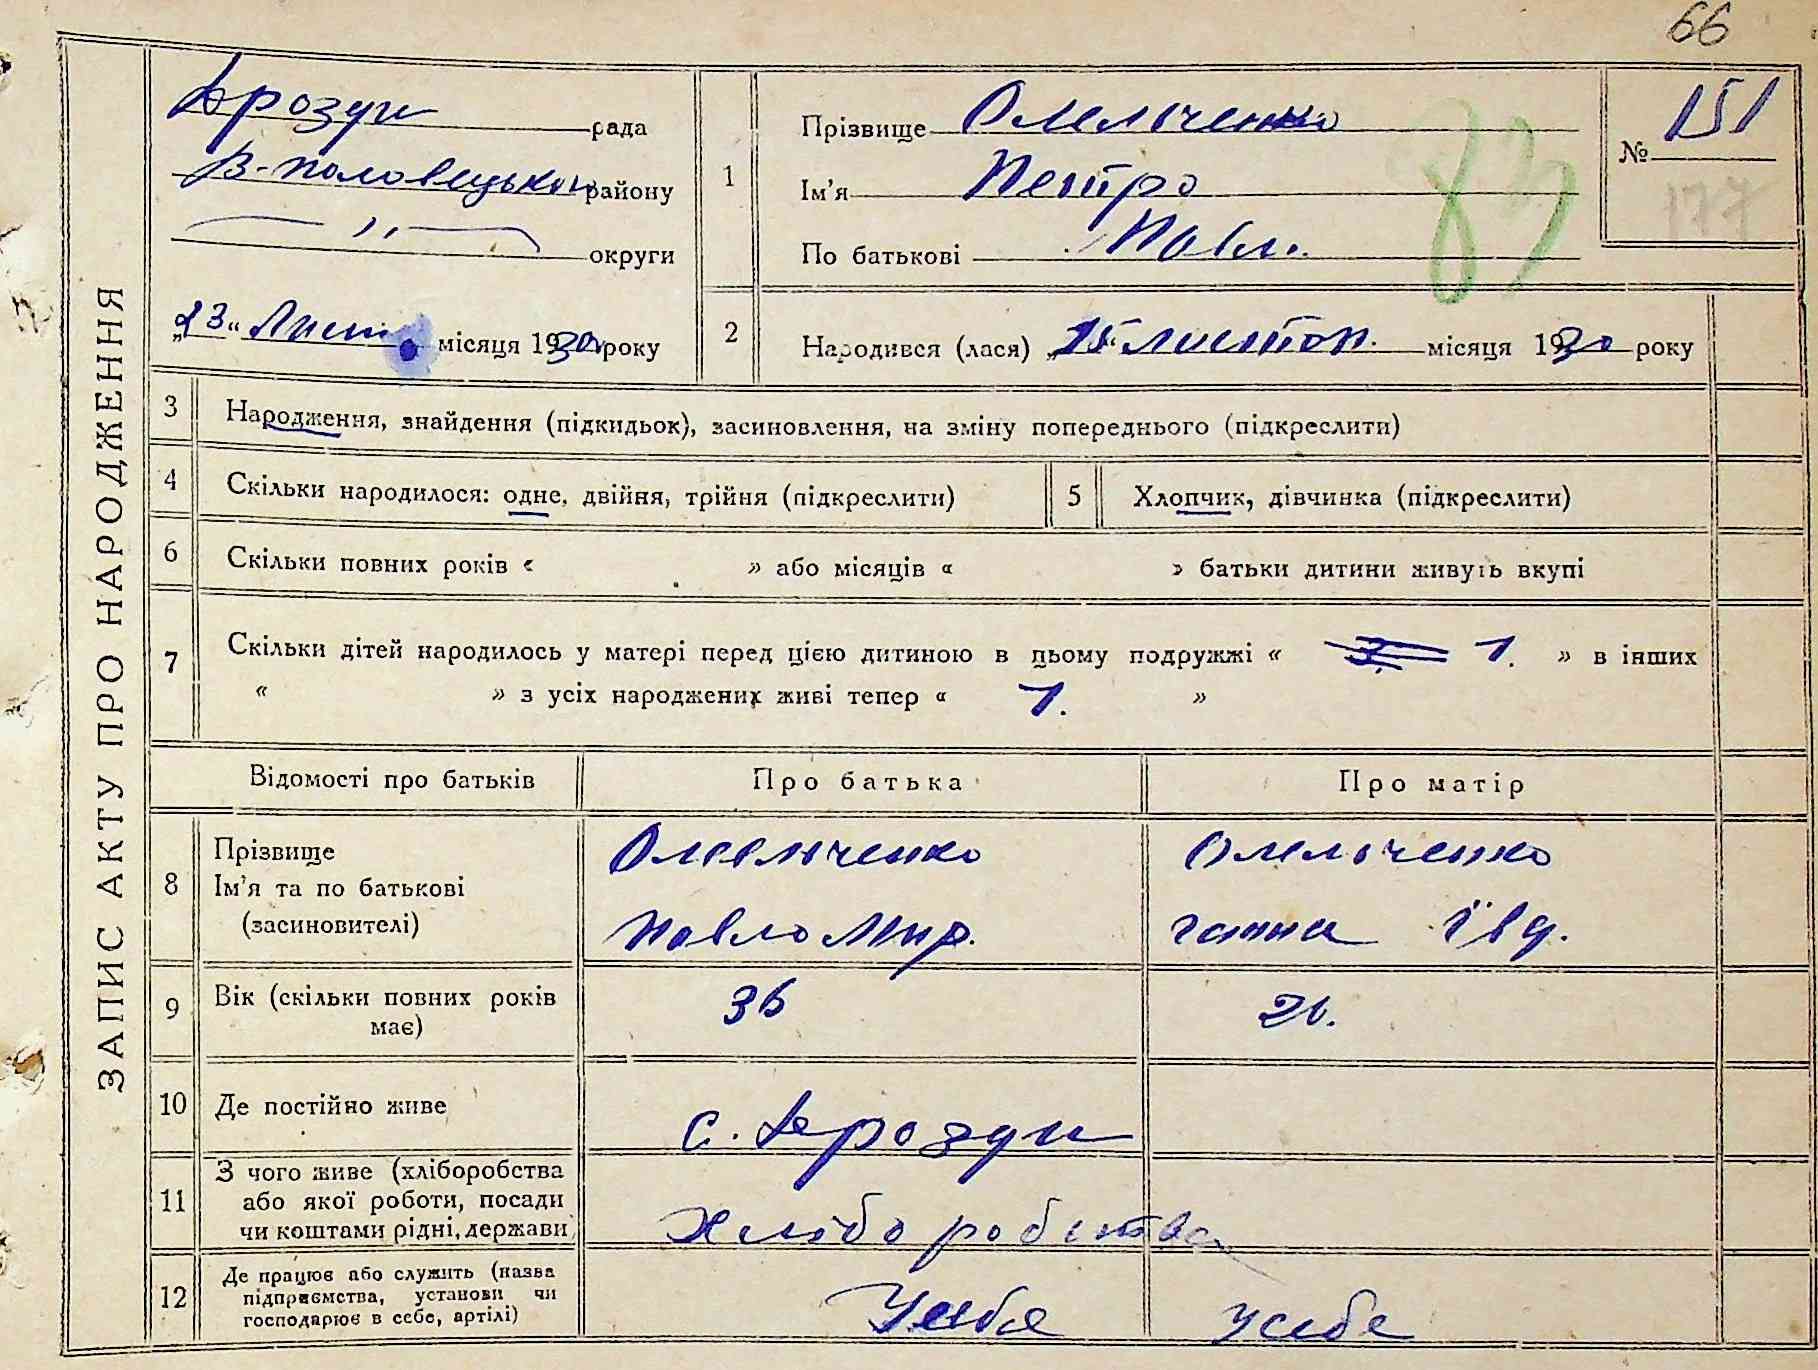 66
ЗАПИС АКТУ ПРО НАРОДЖЕННЯ
Дрозди рада
В-Половецького району
— " — округи
„23“ Лист. місяця 1930 року
1
Прізвище Омельченко
Ім'я Петро
По батькові Павл.
№ 151
177
83
2
Народився (лася) „15“ листоп. місяця 1930 року
3 Народження, знайдення (підкидьок), засиновлення, на зміну попереднього (підкреслити)
4 Скільки народилося: одне, двійня, трійня (підкреслити)
5 Хлопчик, дівчинка (підкреслити)
6 Скільки повних років « » або місяців « » батьки дитини живуть вкупі
7 Скільки дітей народилось у матері перед цією дитиною в цьому подружжі « 1. » в інших
« » з усіх народжених живі тепер « 1. »
Відомості про батьків Про батька Про матір
8 Прізвище Омельченко Омельченко
Ім'я та по батькові
(засиновителі) Павло Мир. Ганна Івд.
9 Вік (скільки повних років має) 36 26.
10 Де постійно живе с. Дрозди
11 З чого живе (хліборобства
або якої роботи, посади
чи коштами рідні, держави) Хліборобства
12 Де працює або служить (назва
підприємства, установи чи
господарює в себе, артілі) У себе у себе